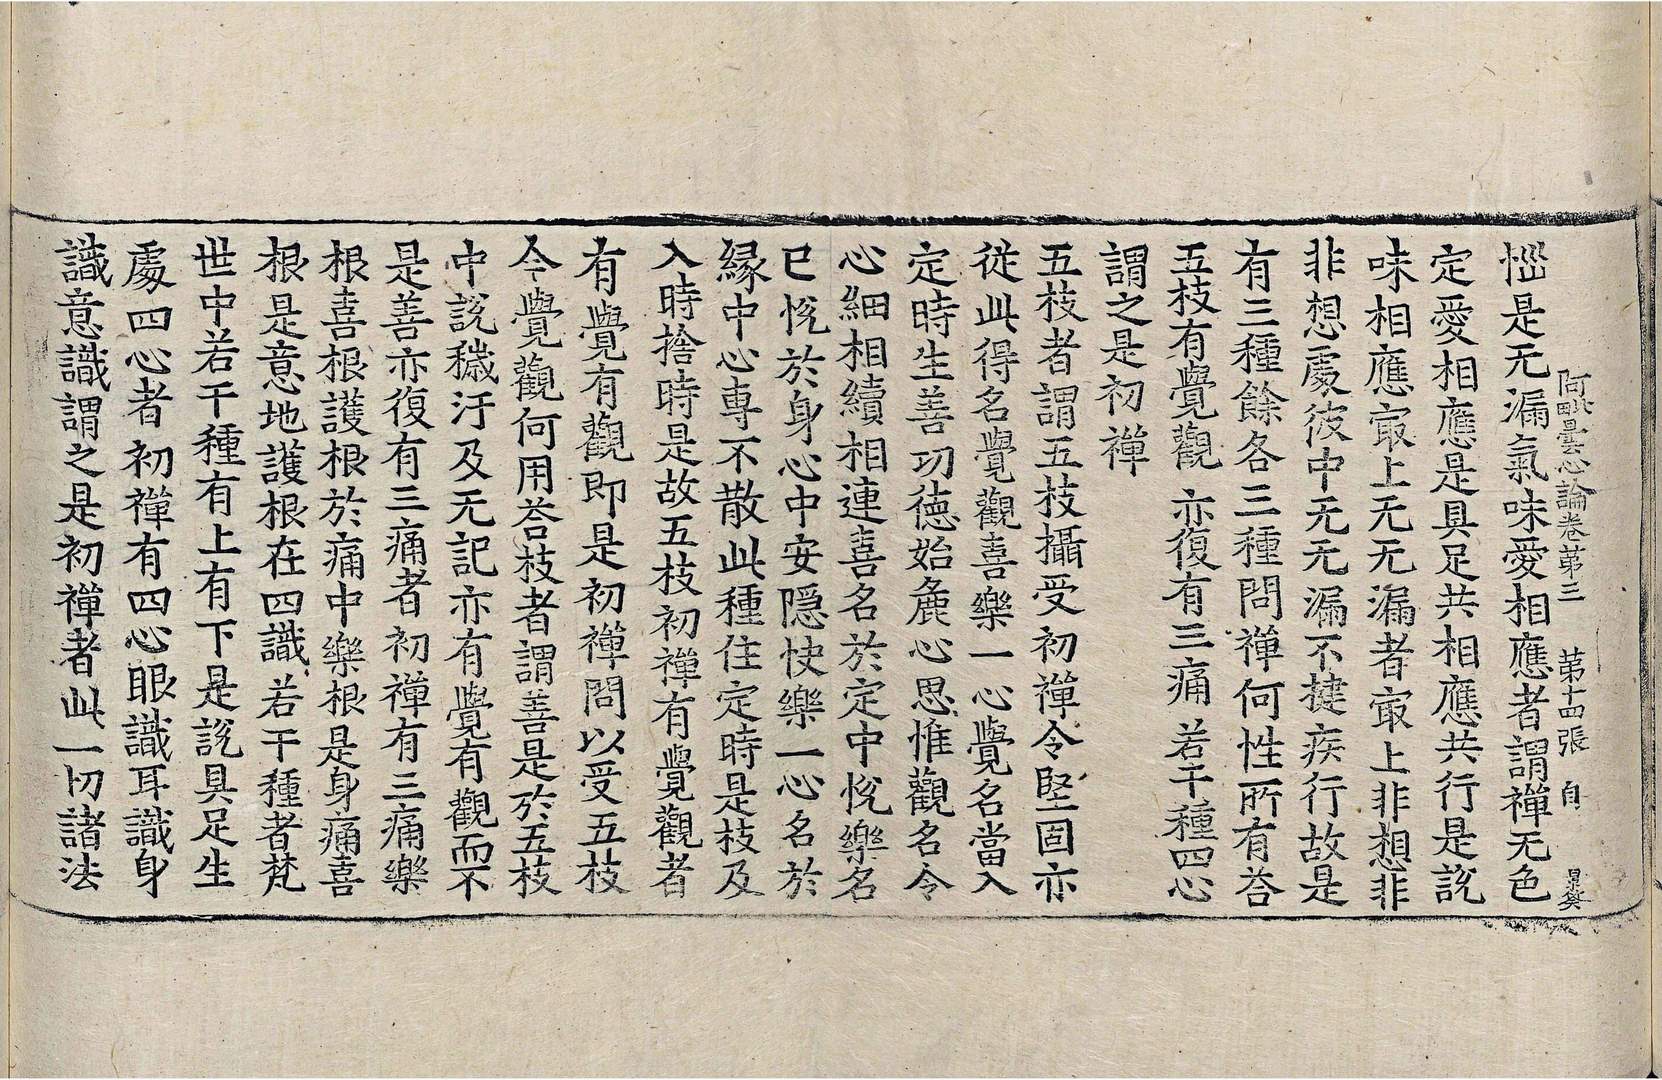 阿毗曇心論卷第三　第十四張　自　昙英
惱是无漏氣味愛相應者謂禪无色
定愛相應是具足共相應共行是說
味相應㝡上无无漏者㝡上非想非
非想處彼中无无漏不揵疾行故是
有三種餘各三種問禪何性所有荅
五枝有覺觀 亦復有三痛 若干種四心
謂之是初禪
五枝者謂五枝攝受初禪令堅固亦
從此得名覺觀喜樂一心覺名當入
定時生善功德始麁心思惟觀名令
心細相續相連喜名於定中恱樂名
已恱於身心中安隱快樂一心名於
縁中心專不散此種住定時是枝及
入時捨時是故五枝初禪有覺觀者
有覺有觀即是初禪問以受五枝
今覺觀何用荅枝者謂善是於五枝
中說穢汙及无記亦有覺有觀而不
是善亦復有三痛者初禪有三痛樂
根喜根護根於痛中樂根是身痛喜
根是意地護根在四識若干種者梵
世中若干種有上有下是說具足生
處四心者初禪有四心眼識耳識身
識意識謂之是初禪者此一切諸法